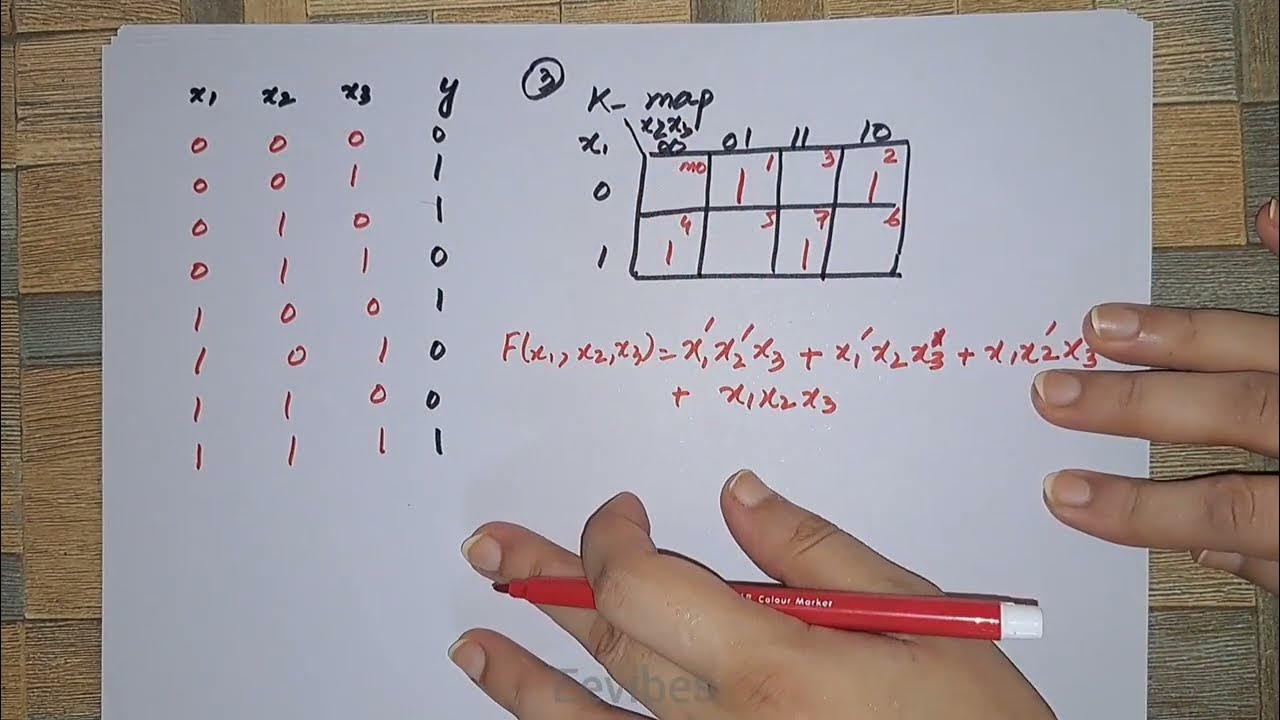 x1 x2 x3 y
0 0 0 0
0 0 1 1
0 1 0 1
0 1 1 0
1 0 0 1
1 0 1 0
1 1 0 0
1 1 1 1
3
K-map
x1 x2x3 00 01 11 10
0 m0 1 1 3 1 2
1 1 4 5 1 7 6
F(x1, x2, x3) = x1'x2'x3 + x1'x2x3' + x1x2'x3
+ x1x2x3
Colour Marker
Eevibes